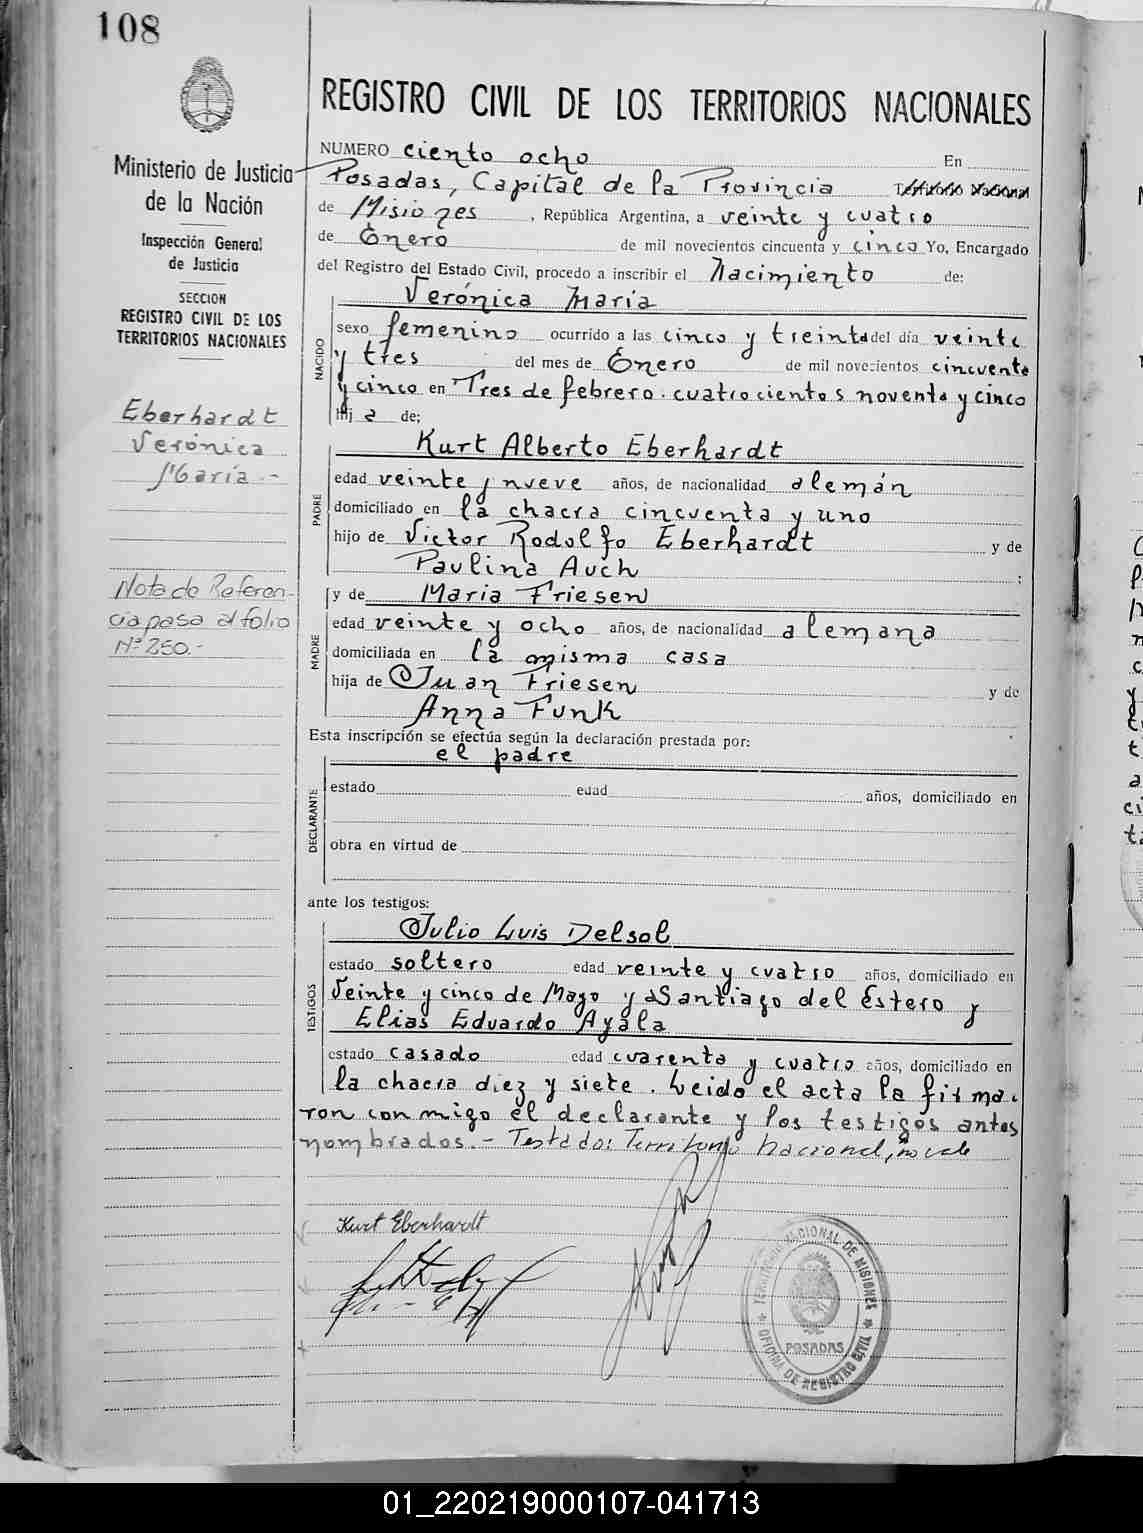 108
Ministerio de Justicia
de la Nación
Inspección General
de Justicia
SECCION
REGISTRO CIVIL DE LOS
TERRITORIOS NACIONALES
Eberhardt
Verónica
María.-
Nota de Referen-
cia pasa al folio
Nº 250.-
REGISTRO CIVIL DE LOS TERRITORIOS NACIONALES
NUMERO ciento ocho En
Posadas, Capital de la Provincia
de Misiones, República Argentina, a veinte y cuatro
de Enero de mil novecientos cincuenta y cinco Yo, Encargado
del Registro del Estado Civil, procedo a inscribir el Nacimiento de:
Verónica María
NACIDO
sexo femenino ocurrido a las cinco y treinta del día veinte
y tres del mes de Enero de mil novecientos cincuenta
y cinco en Tres de febrero. cuatrocientos noventa y cinco
hij a de;
Kurt Alberto Eberhardt
PADRE
edad veinte y nueve años, de nacionalidad alemán
domiciliado en la chacra cincuenta y uno
hijo de Victor Rodolfo Eberhardt y de
Paulina Auch ;
y de María Friesen
MADRE
edad veinte y ocho años, de nacionalidad alemana
domiciliada en la misma casa
hija de Juan Friesen y de
Anna Funk .
Esta inscripción se efectúa según la declaración prestada por:
el padre
DECLARANTE
estado edad años, domiciliado en
obra en virtud de
ante los testigos:
Julio Luis Delsol
TESTIGOS
estado soltero edad veinte y cuatro años, domiciliado en
Veinte y cinco de Mayo y Santiago del Estero y
Elias Eduardo Ayala
estado casado edad cuarenta y cuatro años, domiciliado en
la chacra diez y siete. Leido el acta la firma-
ron conmigo el declarante y los testigos antes
nombrados.- Testado: Territorio Nacional, no vale
Kurt Eberhardt
TERRITORIO NACIONAL DE MISIONES
POSADAS
OFICINA DE REGISTRO CIVIL
01_220219000107-041713